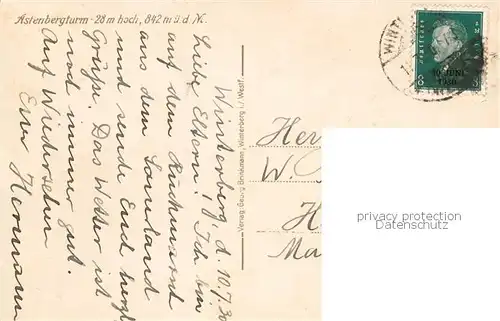 Astenbergturm - 28 m hoch, 842 m ü. d. N.
Winterberg, d. 10.7.30
Liebe Eltern! Ich bin
auf dem Rückmarsch
aus dem Sauerland
und sende Euch herzl.
Grüße. Das Wetter ist
noch immer gut.
Auf Wiedersehen
Euer Hermann
Verlag: Georg Brinkmann, Winterberg i./Westf.
Deutsches Reich
8
30. JUNI
1930
WINT
Her
W.
H
Ma
privacy protection
Datenschutz